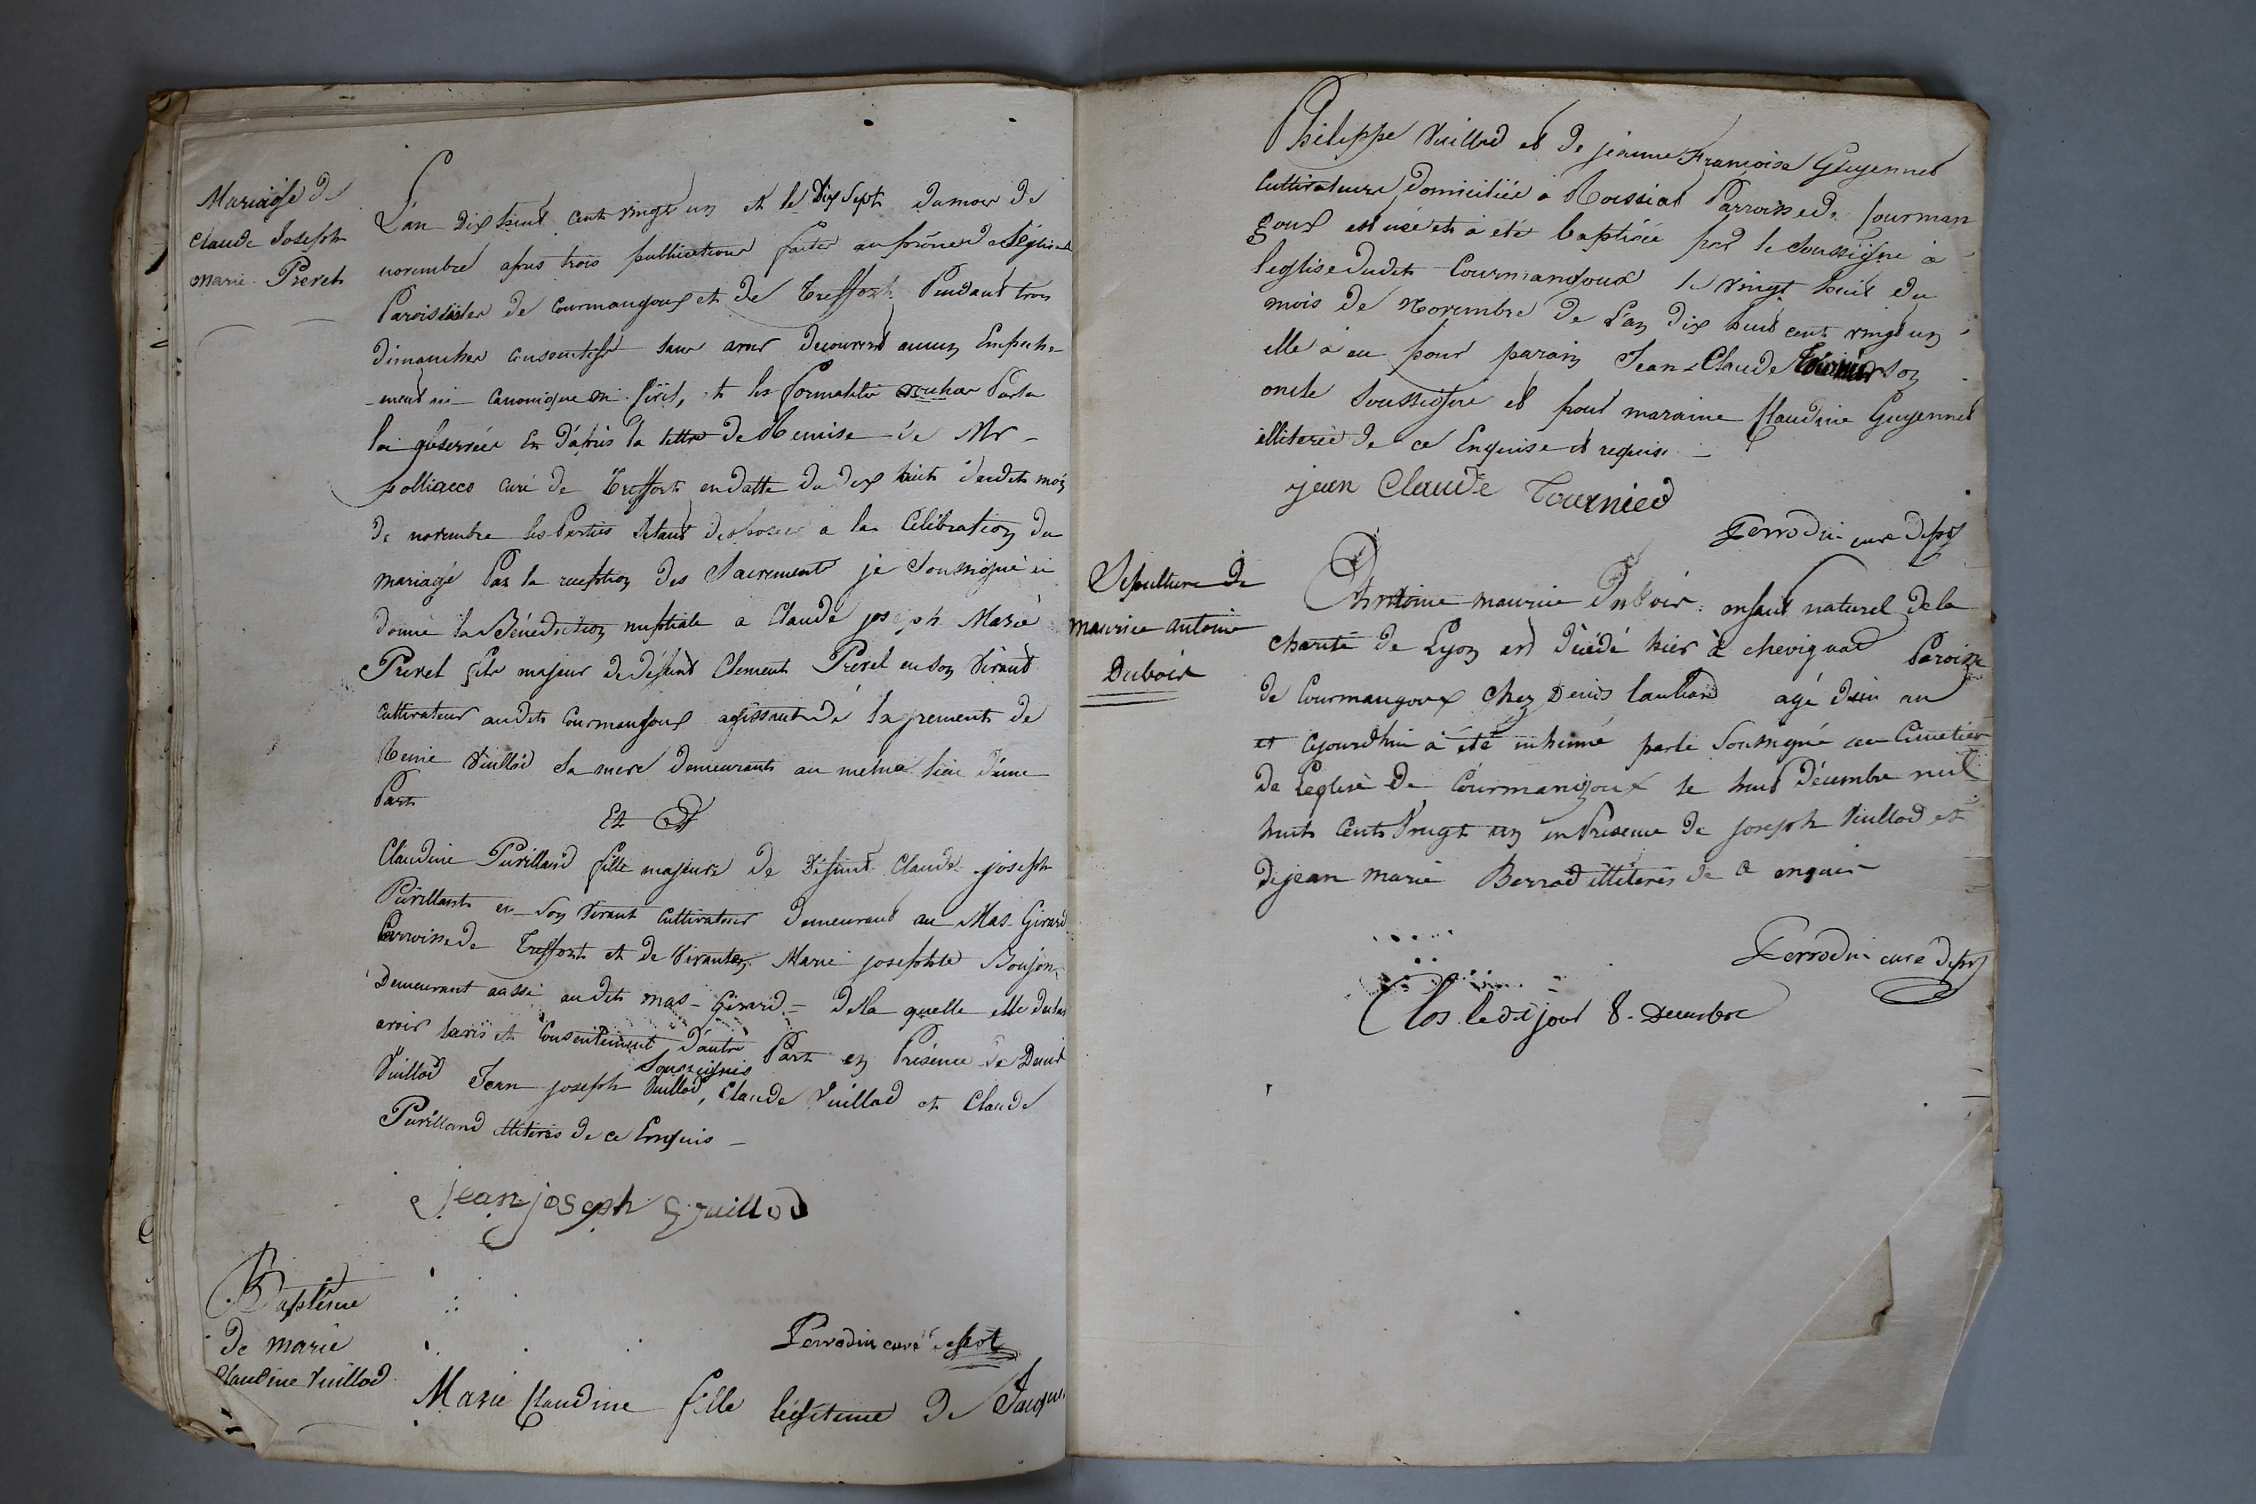 Mariage de
Claude Joseph
Marie Prevel
L'an dix huit cent vingt un et le Dix sept du mois de
novembre après trois publications faites au prône de l'église
Paroissiales de Courmangoux et de Treffort Pendant trois
dimanches consecutifs sans avoir decouvert aucun Empeche-
-ment ni canonique ni civil, et les formalités voulues Par la
loi observées En d'après la lettre de Remise de Mr -
polliacco curé de Treffort en datte du dix huit dudit mois
de novembre les Parties étant disposées a la Célébration du
mariage Par la reception des Sacrements je Soussigné ai
donné la Bénédiction nuptiale a Claude joseph Marie
Prevel fils majeur de défunt Clement Prevel en son Vivant
cultivateur audit Courmangoux agissant de l'agrement de
Reine Vuillod sa mere demeurants au même lieu d'une
Part
Et
Claudine Purilland fille majeure de Défunt Claude joseph
Purillant en son Vivant Cultivateur demeurant au Mas Girard
Parroisse de Treffort et de Vivante Marie josephte Boujon
Demeurant aussi audit mas - Girard - de la quelle elle dit
avoir l'avis et Consentement d'autre Part en Présence de Denis
Soussignés
Vuillod Jean joseph Vuillod, Claude Vuillod et Claude
Purilland illiterés de ce Enquis -
jean joseph Vuillod
Perrodin curé desst
Baptême
de marie
Claudine Vuillod
Marie Claudine fille légitime de Jacques
Philippe Vuillod et de jeanne Françoise Guyennet
Cultivateurs domiciliés à Roissiat Parroisse de Courman
goux est née et a été baptisée par le Soussigné à
l'eglise dudit Courmangoux le vingt huit du
mois de Novembre de l'an dix huit cent vingt un
elle a eu pour parain Jean Claude Tournier son
oncle Soussigné et pour maraine Claudine Guyennet
illiterée de ce Enquise et requise -
jean Claude Tournied
Perrodin curé desst
Sepulture de
maurice antoine
Dubois
Antoine maurice Dubois enfant naturel de la
charité de Lyon est décédé hier à chevignat Paroisse
de Courmangoux chez Denis agé d'un an
et aujourdhui à été inhumé par le Soussigné au Cimetier
de l'eglise de Courmangoux le huit décembre mil
huit Cent Vingt un en Présence de joseph Vuillod et
de jean marie Berrod illiterés de ce enquis
Perrodin curé desst
Clos ledit jour 8. Decembre